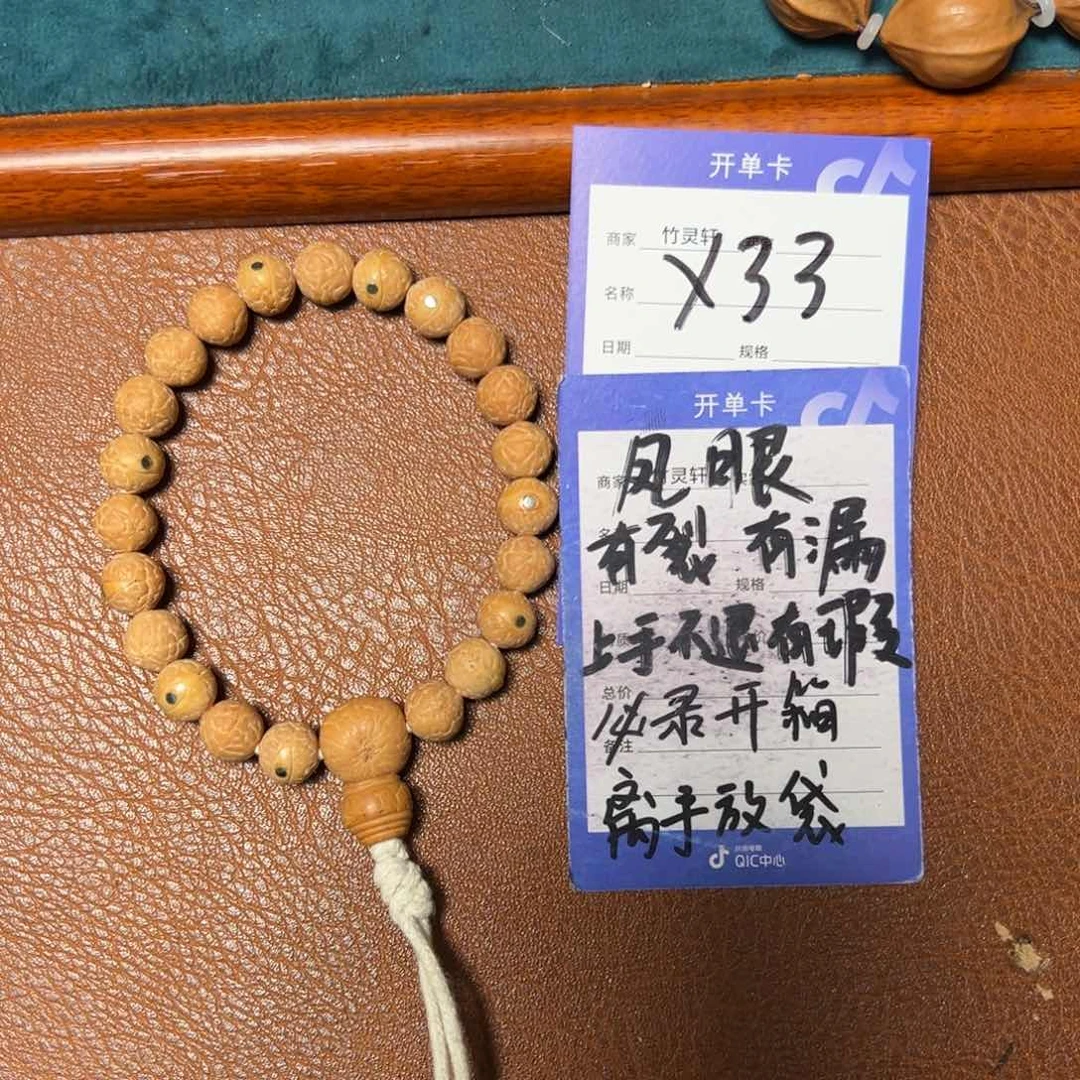 开单卡
商家 竹灵轩
X33
名称
日期 规格
开单卡
凤眼
商家 竹灵轩
有裂 有漏
日期 规格
上手不退有瑕
总价
必录开箱
备注
离手放袋
QIC中心